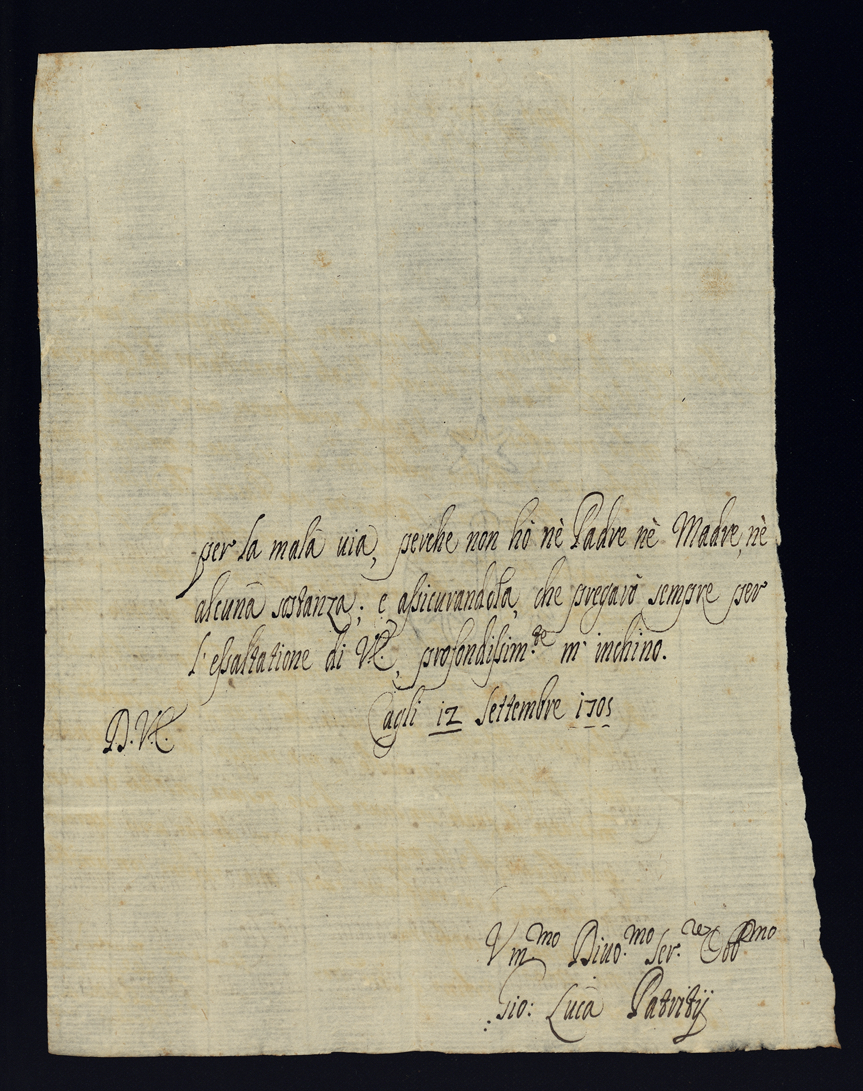 per la mala uia, perche non hò nè Padre nè Madre, nè
alcuna sostanza; e assicurandola, che pregarò sempre per
l'essaltatione di V.E., profondissim.te m'inchino.
Cagli 12 Settembre 1705
D.V.E.
Vm.mo Diuo.mo Ser.re Obb.mo
Gio: Luca Patritij